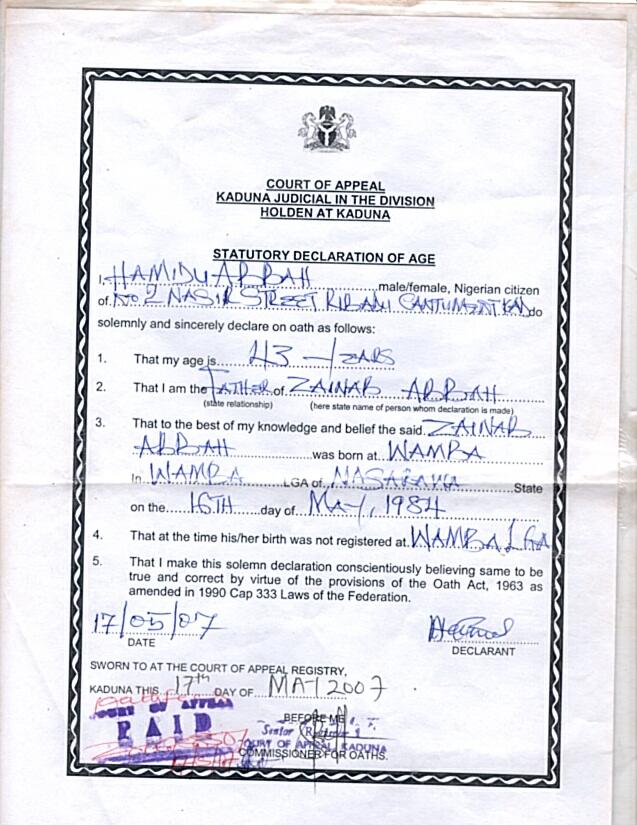 COURT OF APPEAL
KADUNA JUDICIAL IN THE DIVISION
HOLDEN AT KADUNA
STATUTORY DECLARATION OF AGE
I, HAMIDU ABBAH male/female, Nigerian citizen
of NO 2 NASIR STREET RIBADU CANTUMENT KAD do
solemnly and sincerely declare on oath as follows:
1. That my age is 43 - YEARS
2. That I am the FATHER of ZAINAB ABBAH
(state relationship) (here state name of person whom declaration is made)
3. That to the best of my knowledge and belief the said ZAINAB
ABBAH was born at WAMBA
In WAMBA LGA of NASARAWA State
on the 16TH day of MAY, 1984
4. That at the time his/her birth was not registered at WAMBA LGA
5. That I make this solemn declaration conscientiously believing same to be
true and correct by virtue of the provisions of the Oath Act, 1963 as
amended in 1990 Cap 333 Laws of the Federation.
17/05/07
DATE
DECLARANT
SWORN TO AT THE COURT OF APPEAL REGISTRY,
KADUNA THIS 17th DAY OF MAY 2007
COURT OF APPEAL
PAID
BEFORE ME
Senior Registrar
COURT OF APPEAL KADUNA
COMMISSIONER FOR OATHS.